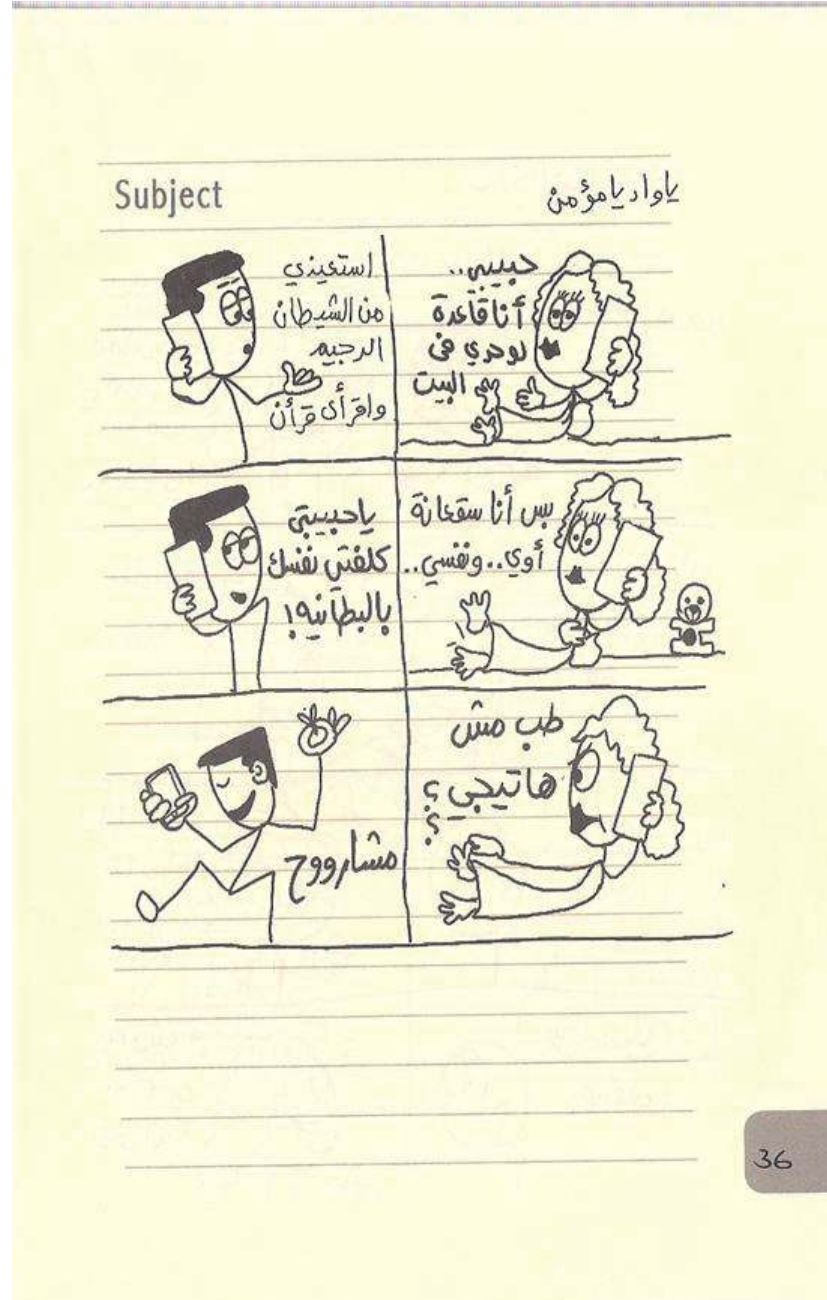 Subject
ياواد يا مؤمن
حبيبي..
أنا قاعدة
لوحدي فى
البيت
استعيذي
من الشيطان
الرجيم
واقرأى قرأن
بس أنا سقعانة
أوي.. ونفسي..
ياحبيبتي
كلفتي نفسك
بالبطانيه!
طب مش
هاتيجي؟؟
مشارووح
36